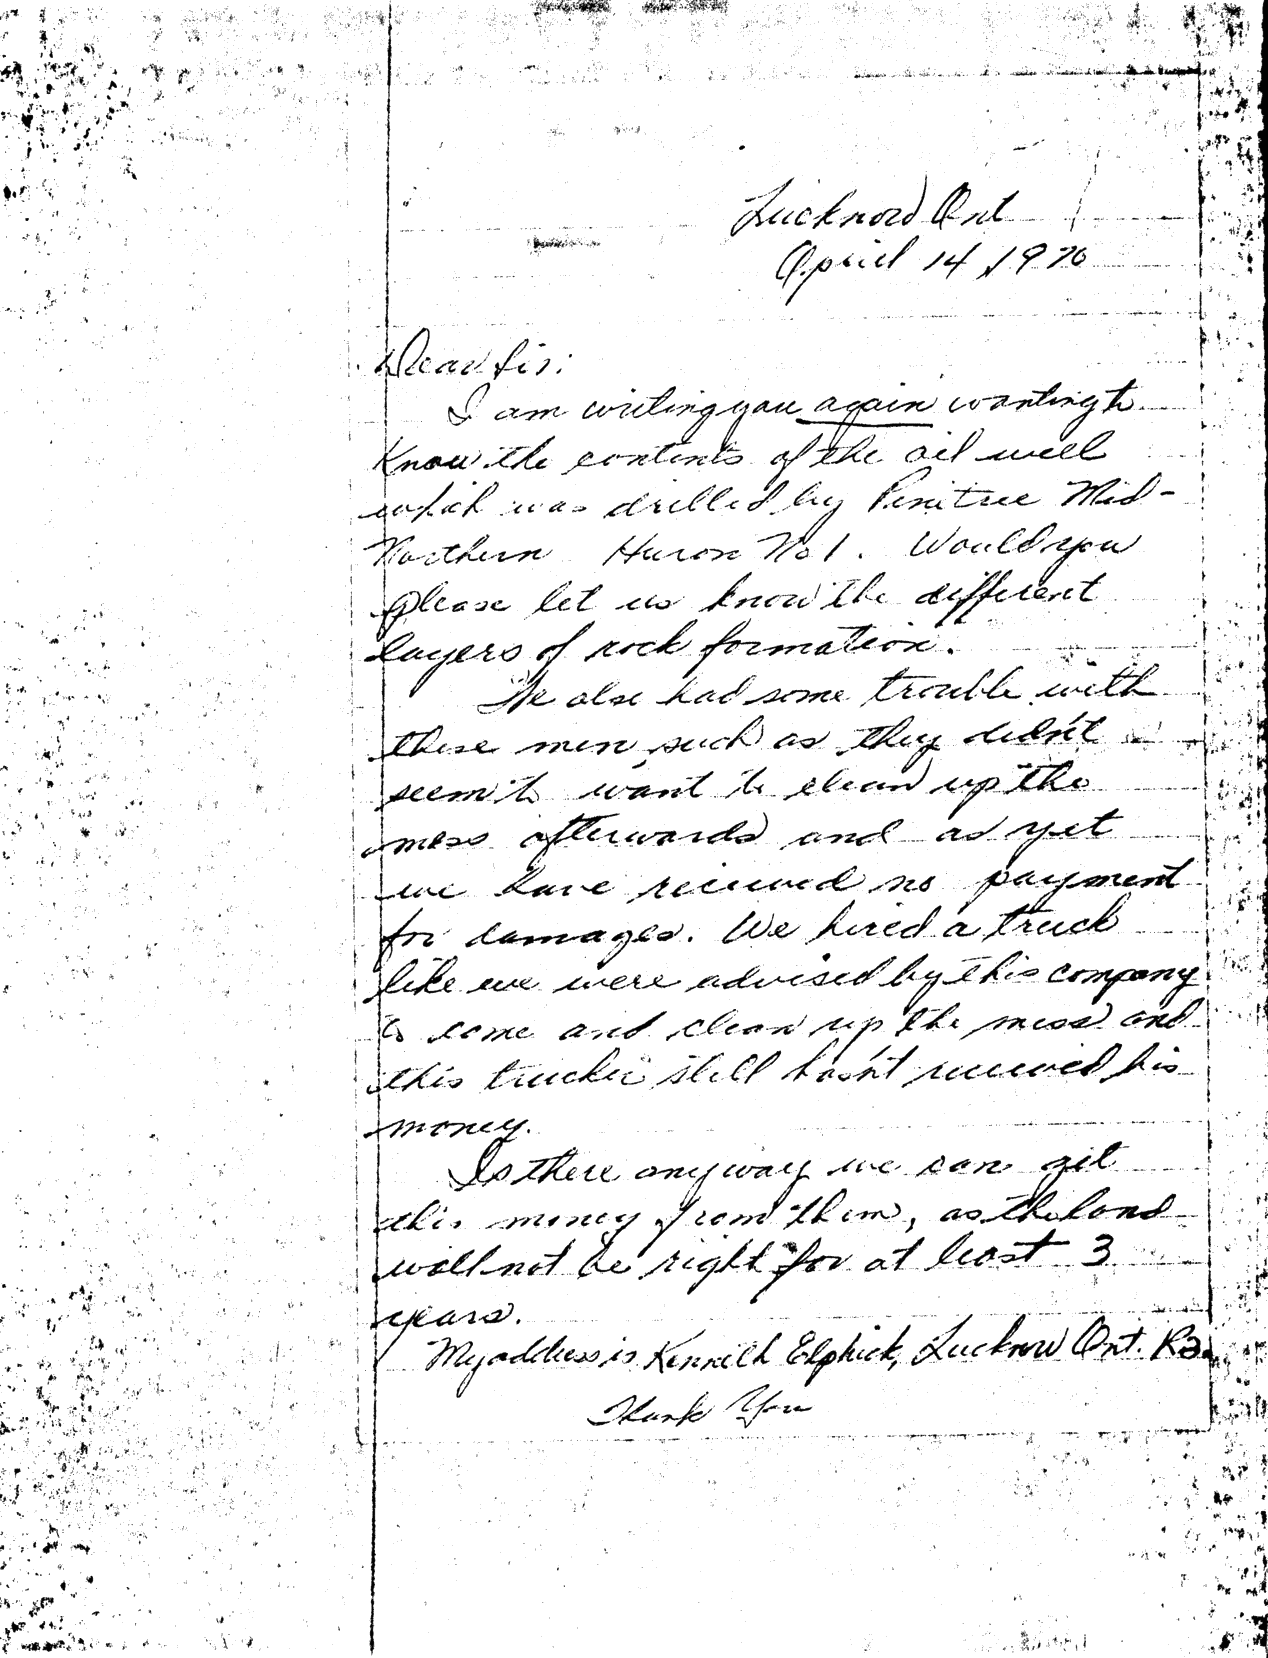 Lucknow Ont
April 14, 1970
Dear Sir:
I am writing you again wanting to
know the contents of the oil well
which was drilled by Penitree Mid-
Northern Huron No 1. Would you
please let us know the different
layers of rock formation.
We also had some trouble with
these men, such as they didn't
seem to want to clean up the
mess afterwards and as yet
we have received no payment
for damages. We hired a truck
like we were advised by this company
to come and clean up the mess and
this trucker still hasn't received his
money.
Is there anyway we can get
this money from them, as the land
will not be right for at least 3
years.
My address is Kenneth Elphick, Lucknow Ont. R3.
Thank You